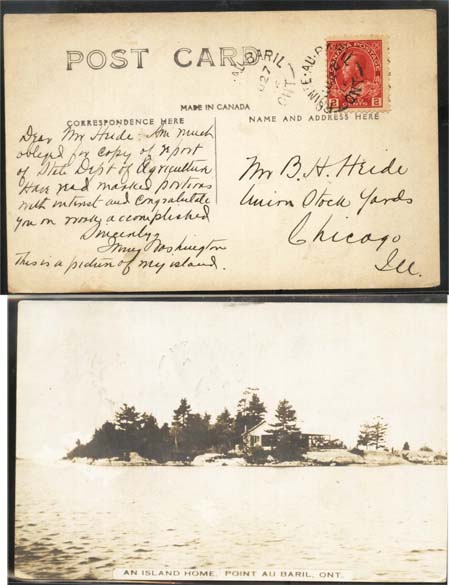 POST CARD
AU BARIL
27
ONT
CANADA POSTAGE
2 CENTS 2
MADE IN CANADA
CORRESPONDENCE HERE
NAME AND ADDRESS HERE
Dear Mr Heide - Am much
obliged for copy of report
of State Dept of Agriculture
Have read marked portions
with interest and congratulate
you on work accomplished
Sincerely
Washington
This is a picture of my island.
Mr B. H. Heide
Union Stock Yards
Chicago
Ill.
AN ISLAND HOME, POINT AU BARIL, ONT.